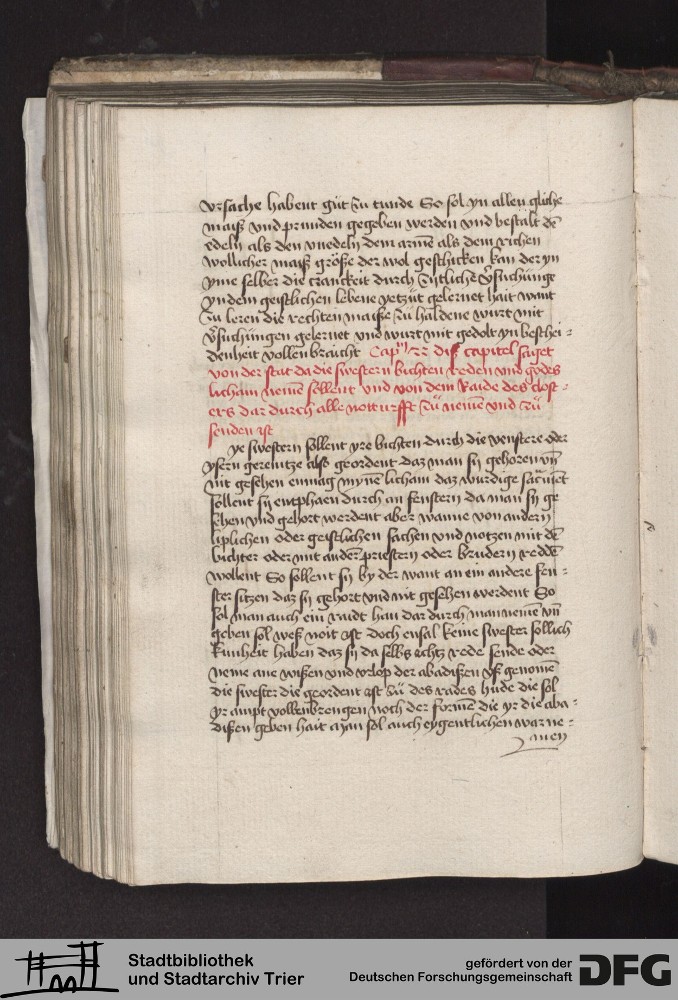 vrsache habent gůt zu tunde So sol yn allen gliche
maiß vnd prunden gegeben werden vnd bestalt dē
edeln als den vnedeln dem armē als dem richen
wollicher maiß große der wol geschicken kan der yn
yme selber die cranckeit durch zytliche v̕suchunge
yn dem geistlichen lebene yetzut gelernet hait want
zu leren die rechten maiße zu haldene wurt mit
v̕suchungen gelernet vnd wurt mit gedolt yn beschei=
denheit vollenbraucht Cap diß capitel saget
von der stat da die swestern bichten reden vnd godes
licham nemē sollent vnd von dem Raide des clost=
ers dar durch alle notturfft zu nemē vnd zu
senden ist
ye swestern sollent yre bichten durch die venstere oder
ysern gerentze also geordent daz man sy gehoren vn̄
nit gesehen enmag mynē licham daz wurdige sacrament
sollent sy entphaen durch an fenstern da man sy ge
sehen vnd gehort werdent aber wanne von andern
liplichen oder geistlichen sachen vnd notzen mit dē
bichter oder mit andern priestern oder brudern reddē
wollent So sollent sy by der want an ein andere fen=
ster sitzen daz sy gehort vnd nit gesehen werdent So
sol man auch ein raidt han dar durch man nemē vn̄
geben sol weß noit ist doch ensal keine swester sollich
kunheit haben daz sy da selbs ichtz rede sende oder
neme ane wißen vnd vrlop der abadißen vß genomē
die swester die geordent ist zu des rades hude die sol
yr ampt vollenbrengen noch der formē die yr die aba=
dißen geben hait Man sol auch eygentlichen war ne=
men
Stadtbibliothek
und Stadtarchiv Trier
gefördert von der
Deutschen Forschungsgemeinschaft
DFG